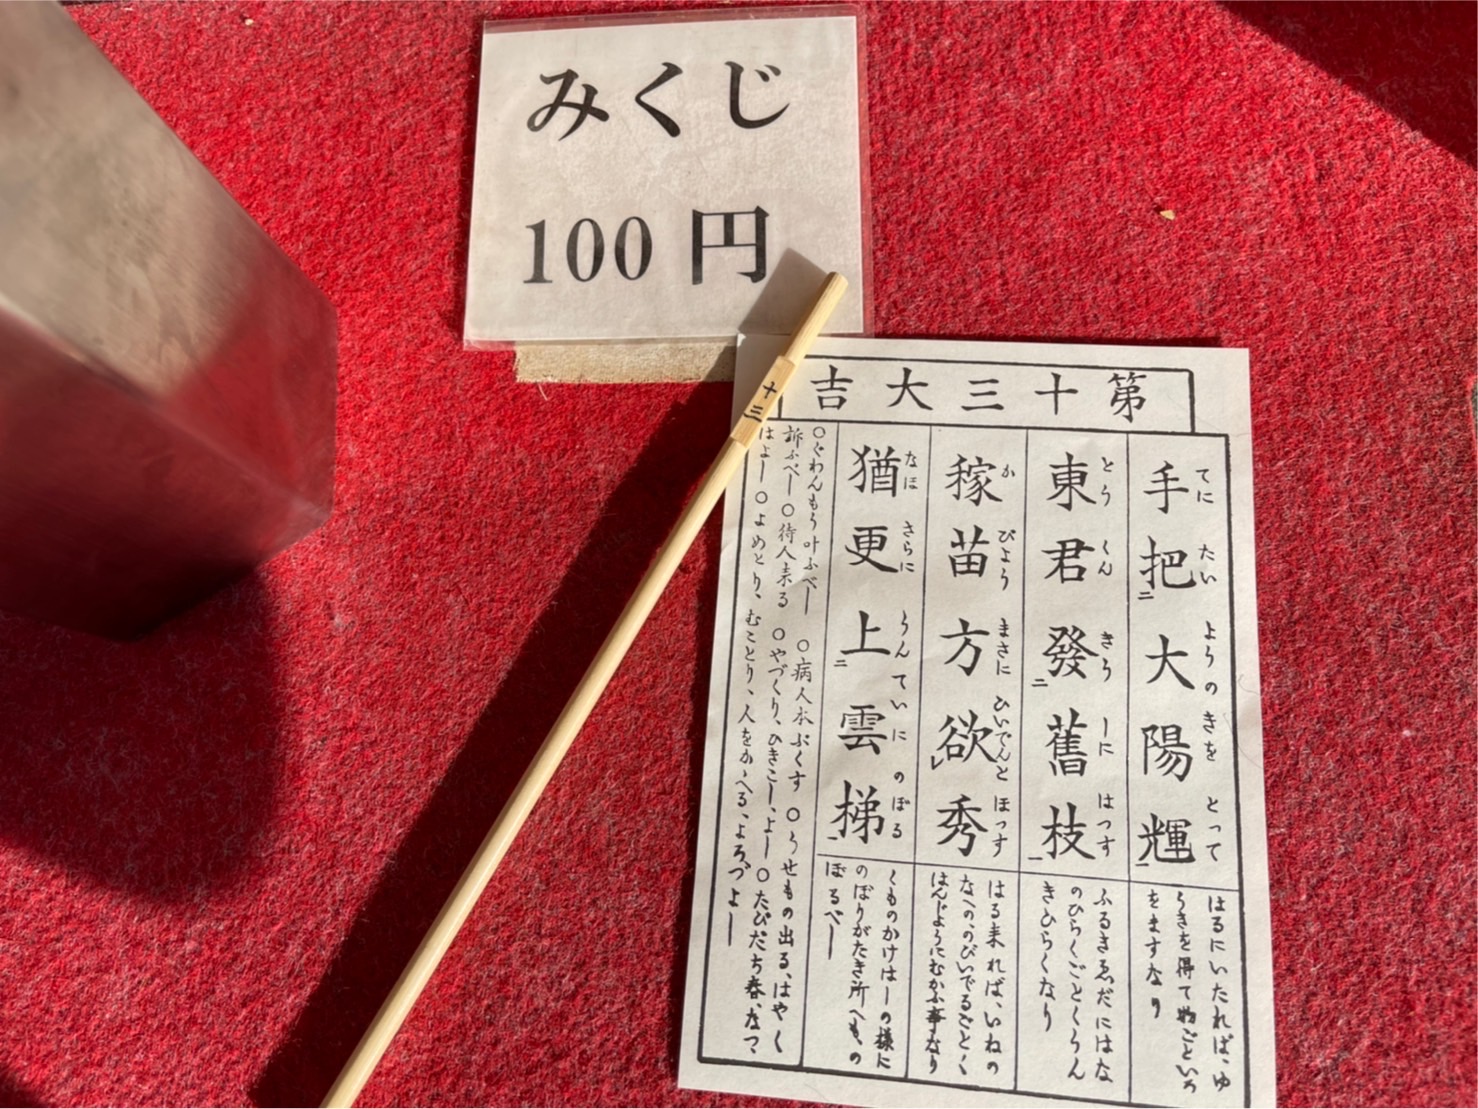 みくじ
100 円
十三
第十三大吉
手把二大陽輝一
てに たい ようの きを とって
はるにいたれば、ゆ
うきを得て物ごといろ
をますなり
東君發二舊枝一
とう くん きう しに はつす
ふるきゑだにはな
のひらくごとくうん
きひらくなり
稼苗方欲レ秀
か びよう まさに ひいでんと ほつす
はる来れば、いねの
なへの、のびいでるごとく
はんじようにむかふ事なり
猶更上二雲梯一
なほ さらに うんていに のぼる
くものかけはしの様に
のぼりがたき所へも、の
ぼるべし
○ぐわんもう叶ふべし ○病人本ぶくす ○うせもの出る、はやく
訴ふべし○待人来る ○やづくり、ひきこし、よし○たびだち春、なつ
はよし○よめとり、むことり、人をかゝへる、よろづよし